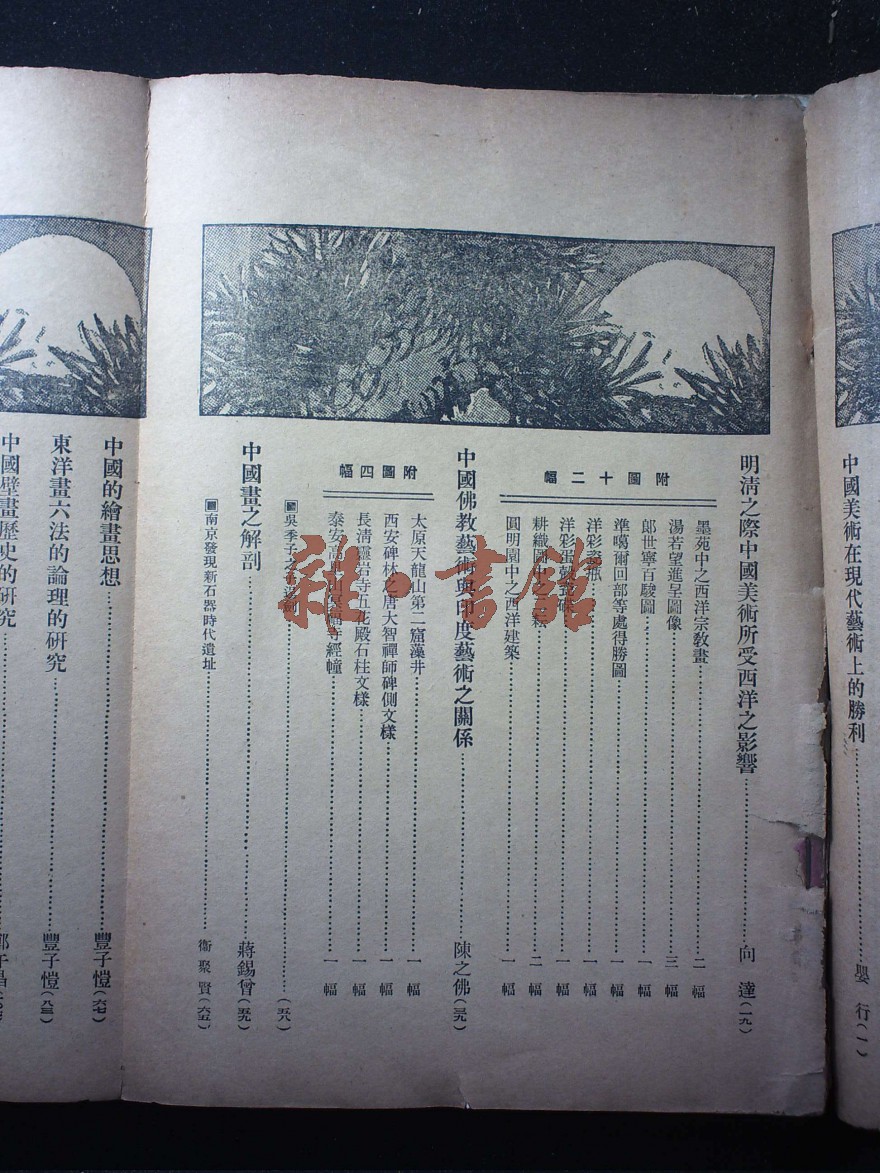 中國美術在現代藝術上的勝利 嬰行(一)
明淸之際中國美術所受西洋之影響 向達(一九)
附圖十二幅
墨苑中之西洋宗敎畫 二幅
湯若望進呈圖像 三幅
郞世寧百駿圖 一幅
準噶爾回部等處得勝圖 一幅
洋彩瓷瓶 一幅
洋彩蛋殼瓷碟 一幅
耕織圖中之耕 二幅
圓明園中之西洋建築 一幅
中國佛敎藝術與印度藝術之關係 陳之佛(三九)
附圖四幅
太原天龍山第二窟藻井 一幅
西安碑林之唐大智禪師碑側文樣 一幅
長淸靈岩寺五花殿石柱文樣 一幅
泰安高里山冥福寺經幢 一幅
吳季子之子逞劍 (五八)
中國畫之解剖 蔣錫曾(五九)
南京發現新石器時代遺址 衞聚賢(六五)
中國的繪畫思想 豐子愷(六七)
東洋畫六法的論理的硏究 豐子愷(八三)
中國壁畫歷史的硏究
雜·書館